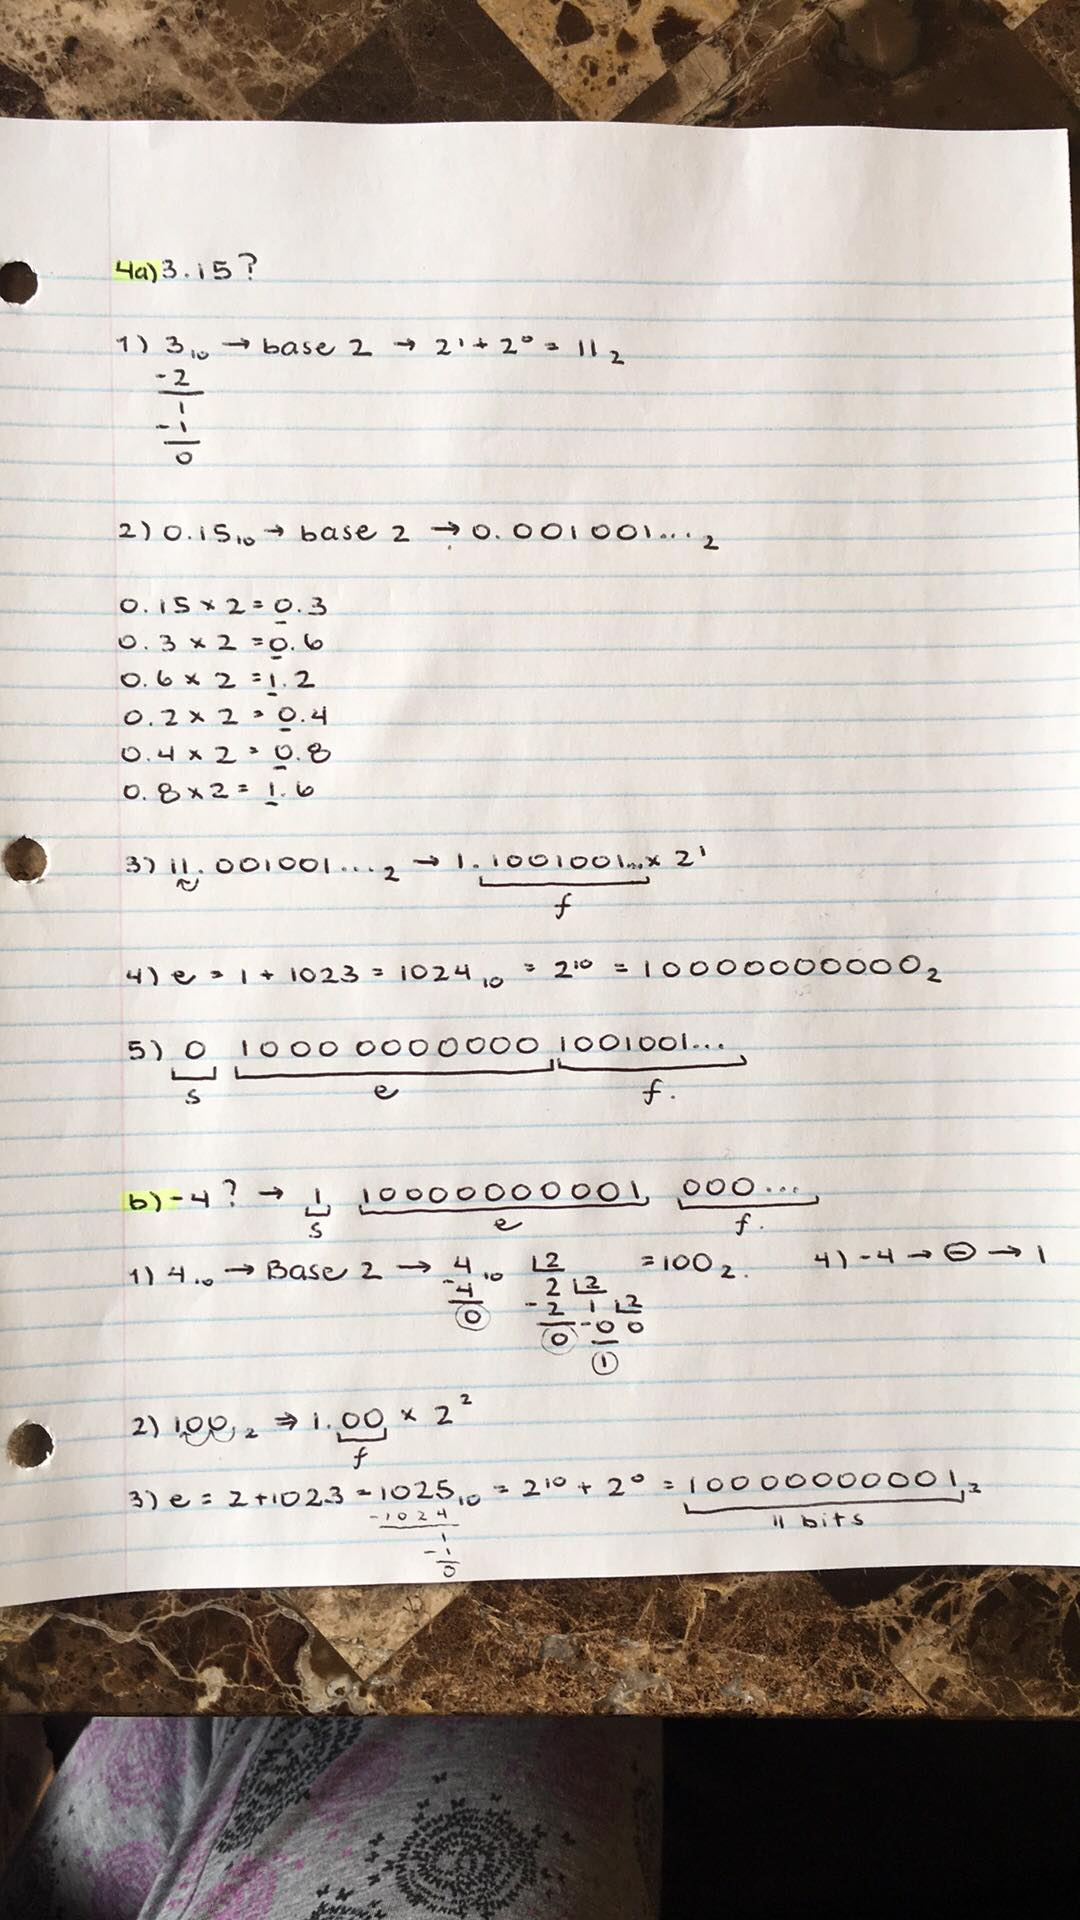 4a) 3.15?
1) 3₁₀ → base 2 → 2¹ + 2⁰ = 11₂
-2
1
-1
0
2) 0.15₁₀ → base 2 → 0.001001...₂
0.15 × 2 = 0.3
0.3 × 2 = 0.6
0.6 × 2 = 1.2
0.2 × 2 = 0.4
0.4 × 2 = 0.8
0.8 × 2 = 1.6
3) 11.001001...₂ → 1.1001001... × 2¹
f
4) e = 1 + 1023 = 1024₁₀ = 2¹⁰ = 10000000000₂
5) 0 10000000000 1001001...
s e f.
b) -4? → 1 10000000001 000...
s e f.
1) 4₁₀ → Base 2 → 4₁₀ 2 = 100₂. 4) -4 → - → 1
-4 2 2
0 -2 1 2
0 -0 0
1
2) 100₂ ⇒ 1.00 × 2²
f
3) e = 2+1023 = 1025₁₀ = 2¹⁰ + 2⁰ = 10000000001₂
-1024 11 bits
1
-1
0